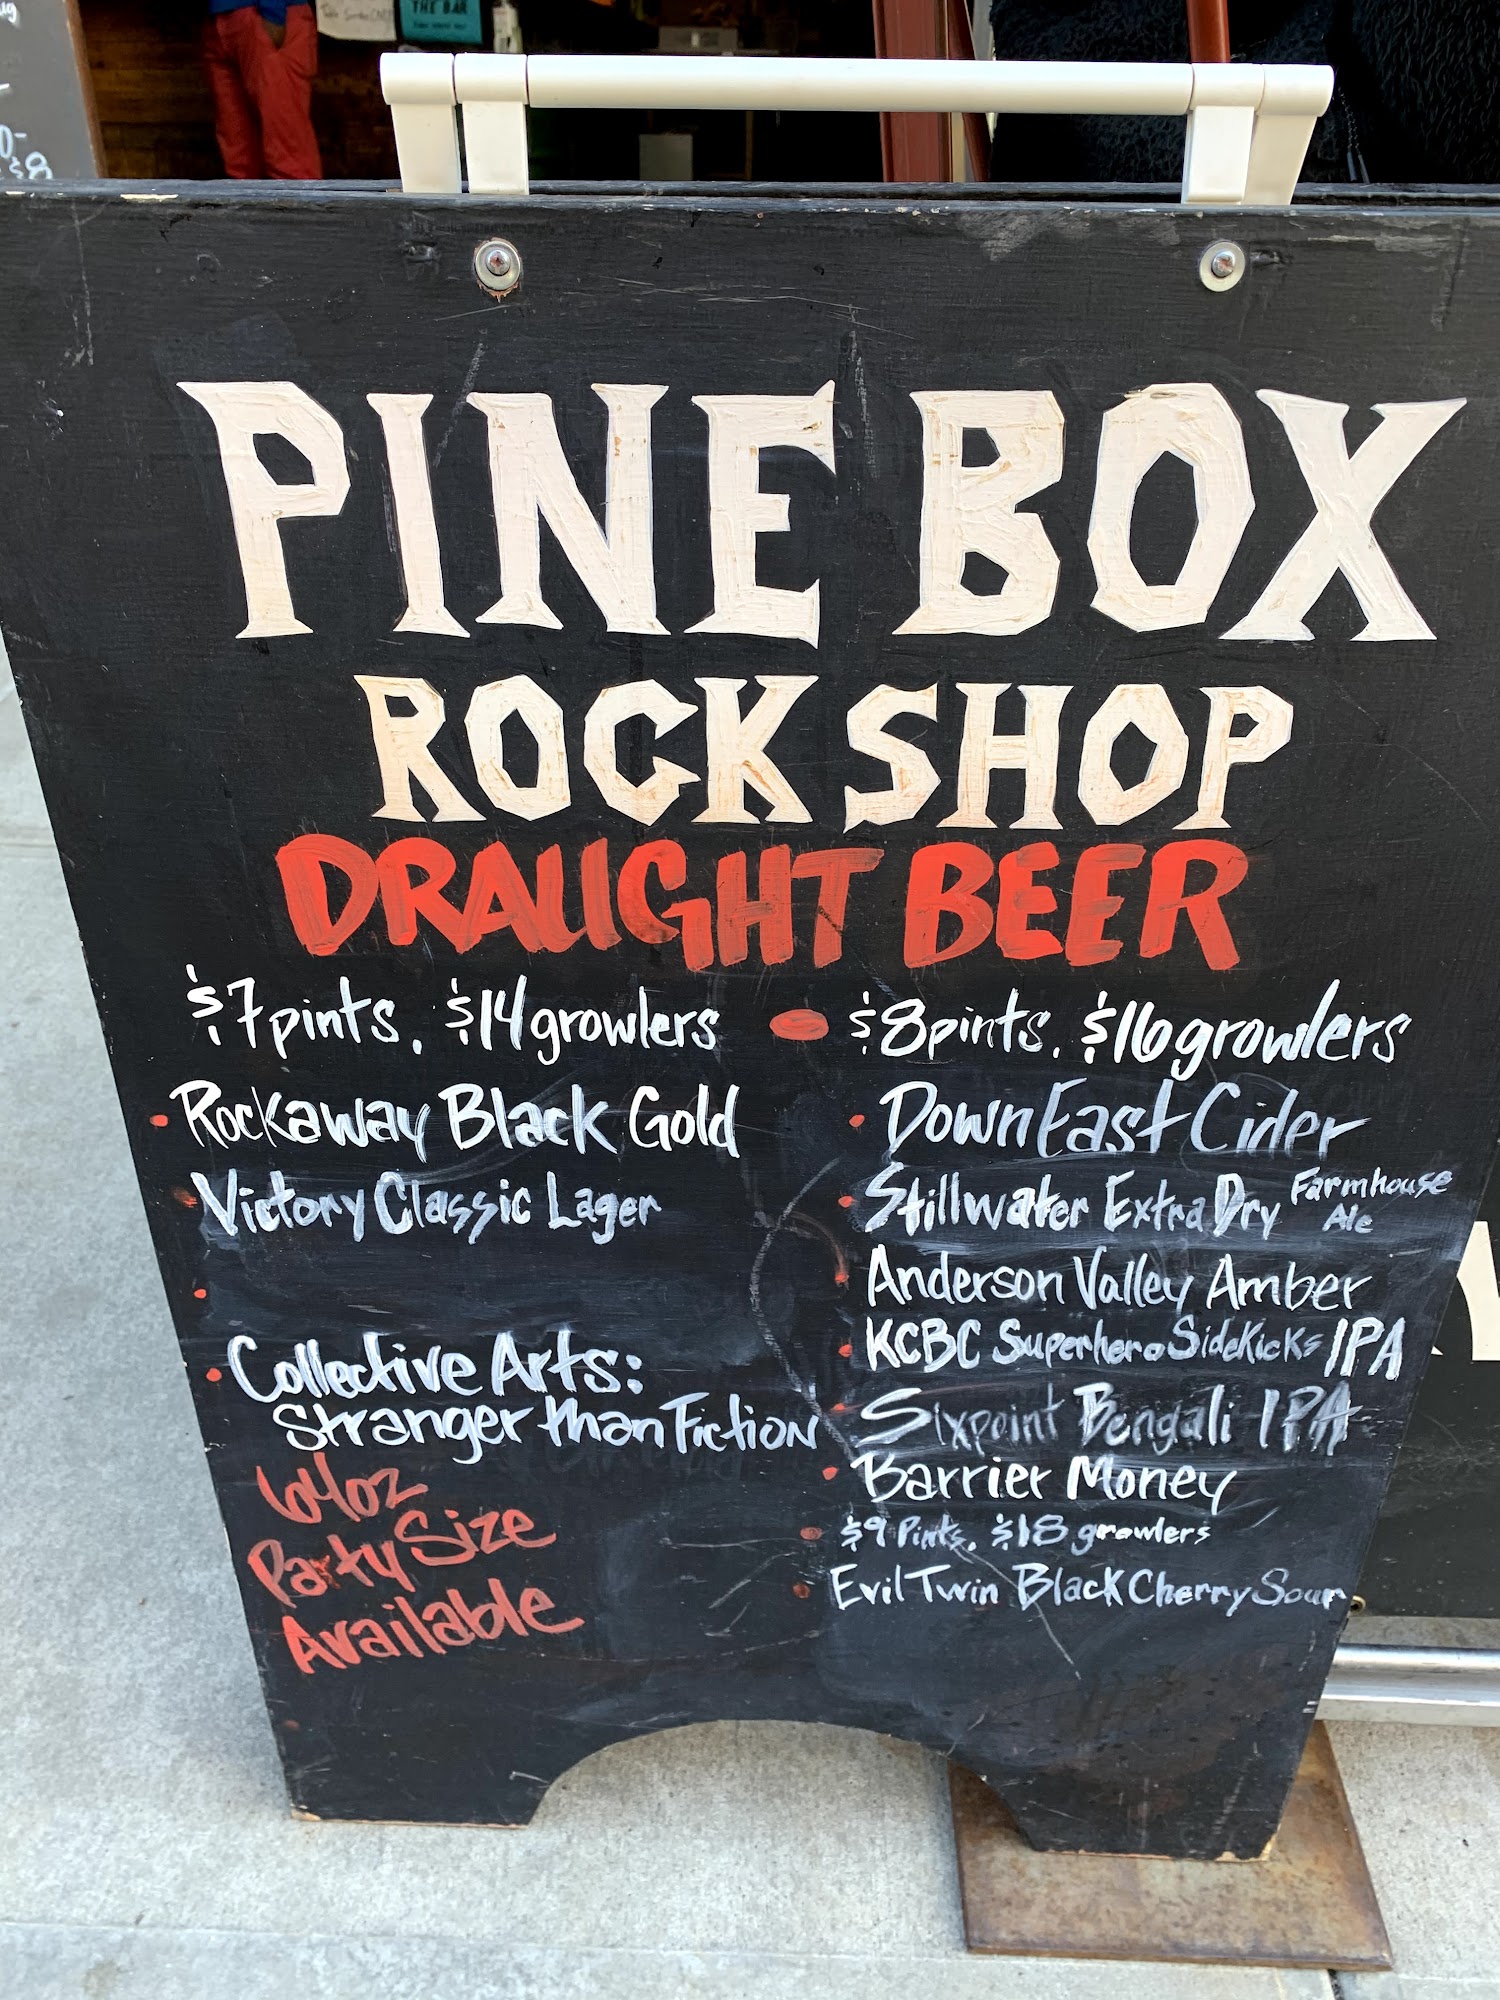 THE BAR
$8
PINE BOX
ROCK SHOP
DRAUGHT BEER
$7 pints, $14 growlers
Rockaway Black Gold
Victory Classic Lager
Collective Arts:
Stranger than Fiction
64oz
Party Size
Available
$8 pints, $16 growlers
DownEast Cider
Stillwater Extra Dry Farmhouse
Ale
Anderson Valley Amber
KCBC Superhero Sidekicks IPA
Sixpoint Bengali IPA
Barrier Money
$9 Pints, $18 growlers
Evil Twin Black Cherry Sour